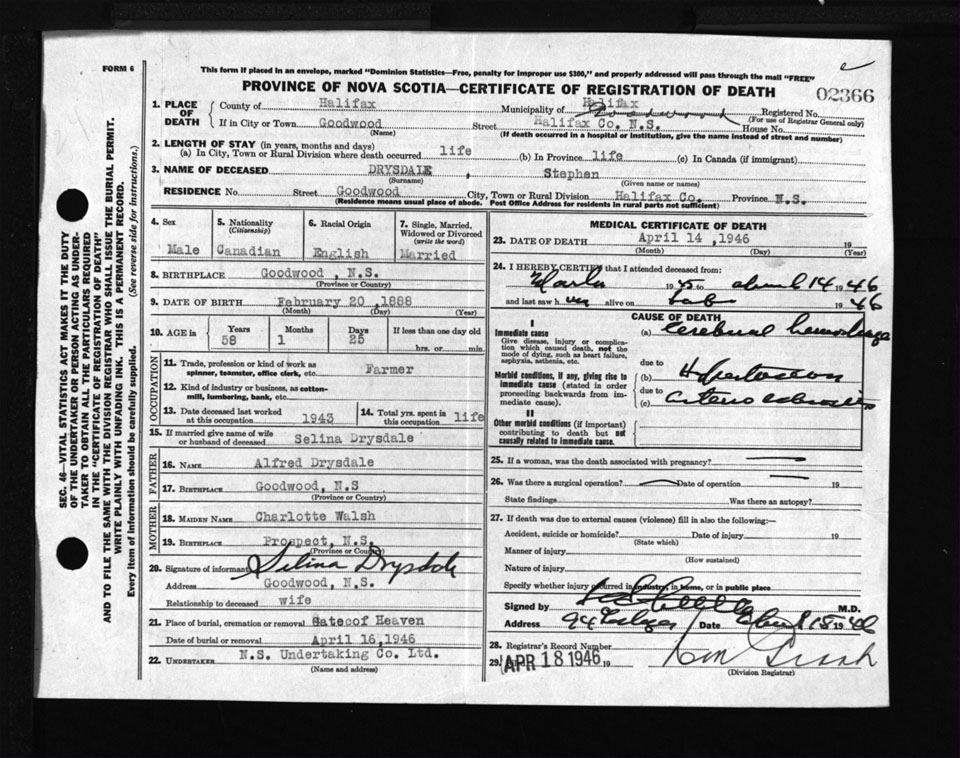 FORM 6
This form if placed in an envelope, marked "Dominion Statistics—Free, penalty for improper use $300," and properly addressed will pass through the mail "FREE"
PROVINCE OF NOVA SCOTIA—CERTIFICATE OF REGISTRATION OF DEATH
02366
1. PLACE OF DEATH
County of Halifax Municipality of Halifax Registered No.
(For use of Registrar General only)
If in City or Town Goodwood Street Halifax Co. N.S. House No.
(Name) (If death occurred in a hospital or institution, give the name instead of street and number)
2. LENGTH OF STAY (in years, months and days)
(a) In City, Town or Rural Division where death occurred life (b) In Province life (c) In Canada (if immigrant)
3. NAME OF DECEASED DRYSDALE , Stephen
(Surname) (Given name or names)
RESIDENCE No. Street Goodwood City, Town or Rural Division Halifax Co. Province N.S.
(Residence means usual place of abode. Post Office Address for residents in rural parts not sufficient)
4. Sex Male
5. Nationality (Citizenship) Canadian
6. Racial Origin English
7. Single, Married, Widowed or Divorced (write the word) Married
8. BIRTHPLACE Goodwood , N.S.
(Province or Country)
9. DATE OF BIRTH February 20 ,1888
(Month) (Day) (Year)
10. AGE in Years 58 Months 1 Days 25 If less than one day old
hrs. or min.
OCCUPATION
11. Trade, profession or kind of work as spinner, teamster, office clerk, etc. Farmer
12. Kind of industry or business, as cotton-mill, lumbering, bank, etc.
13. Date deceased last worked at this occupation 1943
14. Total yrs. spent in this occupation life
15. If married give name of wife or husband of deceased Selina Drysdale
FATHER
16. NAME Alfred Drysdale
17. BIRTHPLACE Goodwood, N.S
(Province or Country)
MOTHER
18. MAIDEN NAME Charlotte Walsh
19. BIRTHPLACE Prospect, N.S.
(Province or Country)
20. Signature of informant Selina Drysdale
Address Goodwood, N.S.
Relationship to deceased wife
21. Place of burial, cremation or removal Gate of Heaven
Date of burial or removal April 16,1946
22. UNDERTAKER N.S. Undertaking Co. Ltd.
(Name and address)
MEDICAL CERTIFICATE OF DEATH
23. DATE OF DEATH April 14 ,1946 19
(Month) (Day) (Year)
24. I HEREBY CERTIFY that I attended deceased from:
19 45 to April 14 1946
and last saw h alive on 19 46
CAUSE OF DEATH
I
Immediate cause
Give disease, injury or complication which caused death, not the mode of dying, such as heart failure, asphyxia, asthenia, etc.
(a) Cerebral hemorrhage
due to
Morbid conditions, if any, giving rise to immediate cause (stated in order proceeding backwards from immediate cause).
(b) Hypertension
due to
(c) Arteriosclerosis
II
Other morbid conditions (if important) contributing to death but not causally related to immediate cause.
25. If a woman, was the death associated with pregnancy?
26. Was there a surgical operation? Date of operation 19
State findings Was there an autopsy?
27. If death was due to external causes (violence) fill in also the following:—
Accident, suicide or homicide? Date of injury 19
(State which)
Manner of injury
(How sustained)
Nature of injury
Specify whether injury occurred in industry, in home, or in public place
Signed by M.D.
Address Date 1946
28. Registrar's Record Number
29. APR 18 1946 19
(Division Registrar)
SEC. 46—VITAL STATISTICS ACT MAKES IT THE DUTY
OF THE UNDERTAKER OR PERSON ACTING AS UNDER-
TAKER TO OBTAIN ALL THE PARTICULARS REQUIRED
IN THE "CERTIFICATE OF REGISTRATION OF DEATH"
AND TO FILE THE SAME WITH THE DIVISION REGISTRAR WHO SHALL ISSUE THE BURIAL PERMIT.
WRITE PLAINLY WITH UNFADING INK. THIS IS A PERMANENT RECORD.
Every item of information should be carefully supplied. (See reverse side for instructions.)